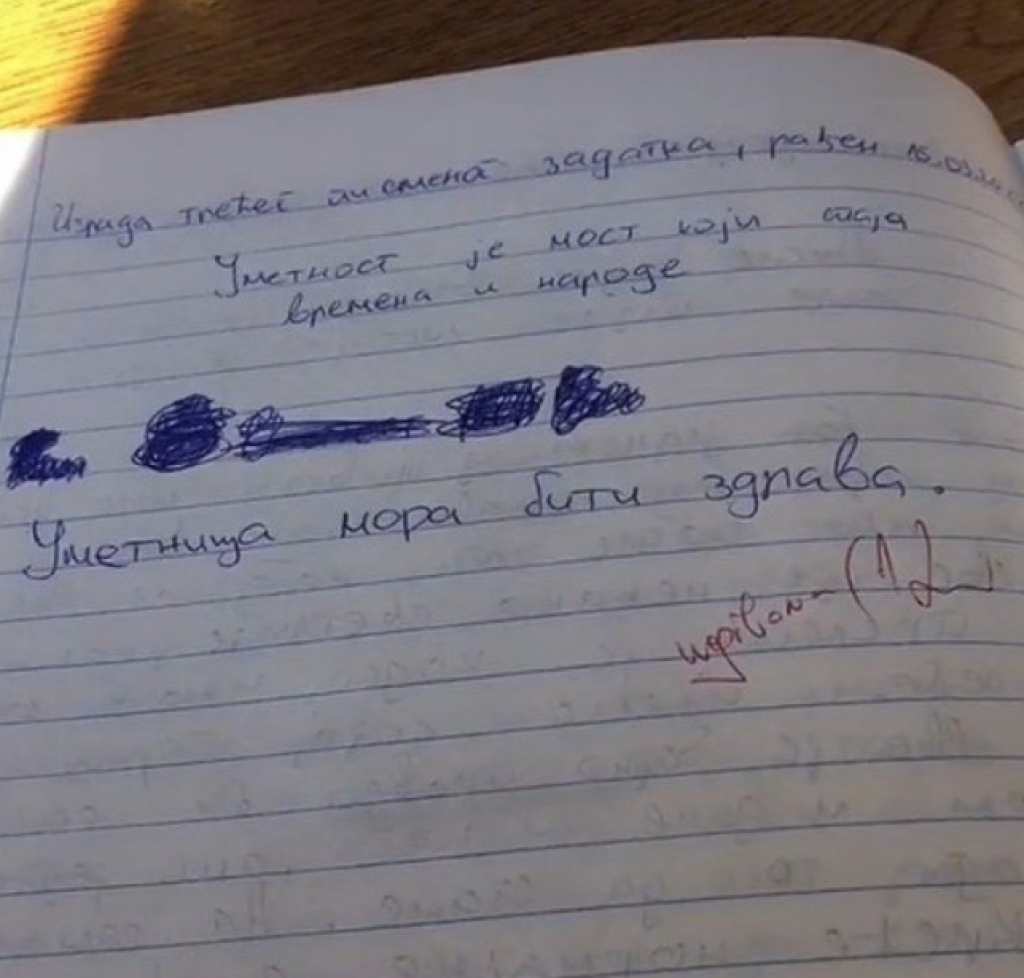 Израда трећег писменог задатка, рађен 16.03.
Уметност је мост који спаја
времена и народе
Уметница мора бити здрава.
(1)